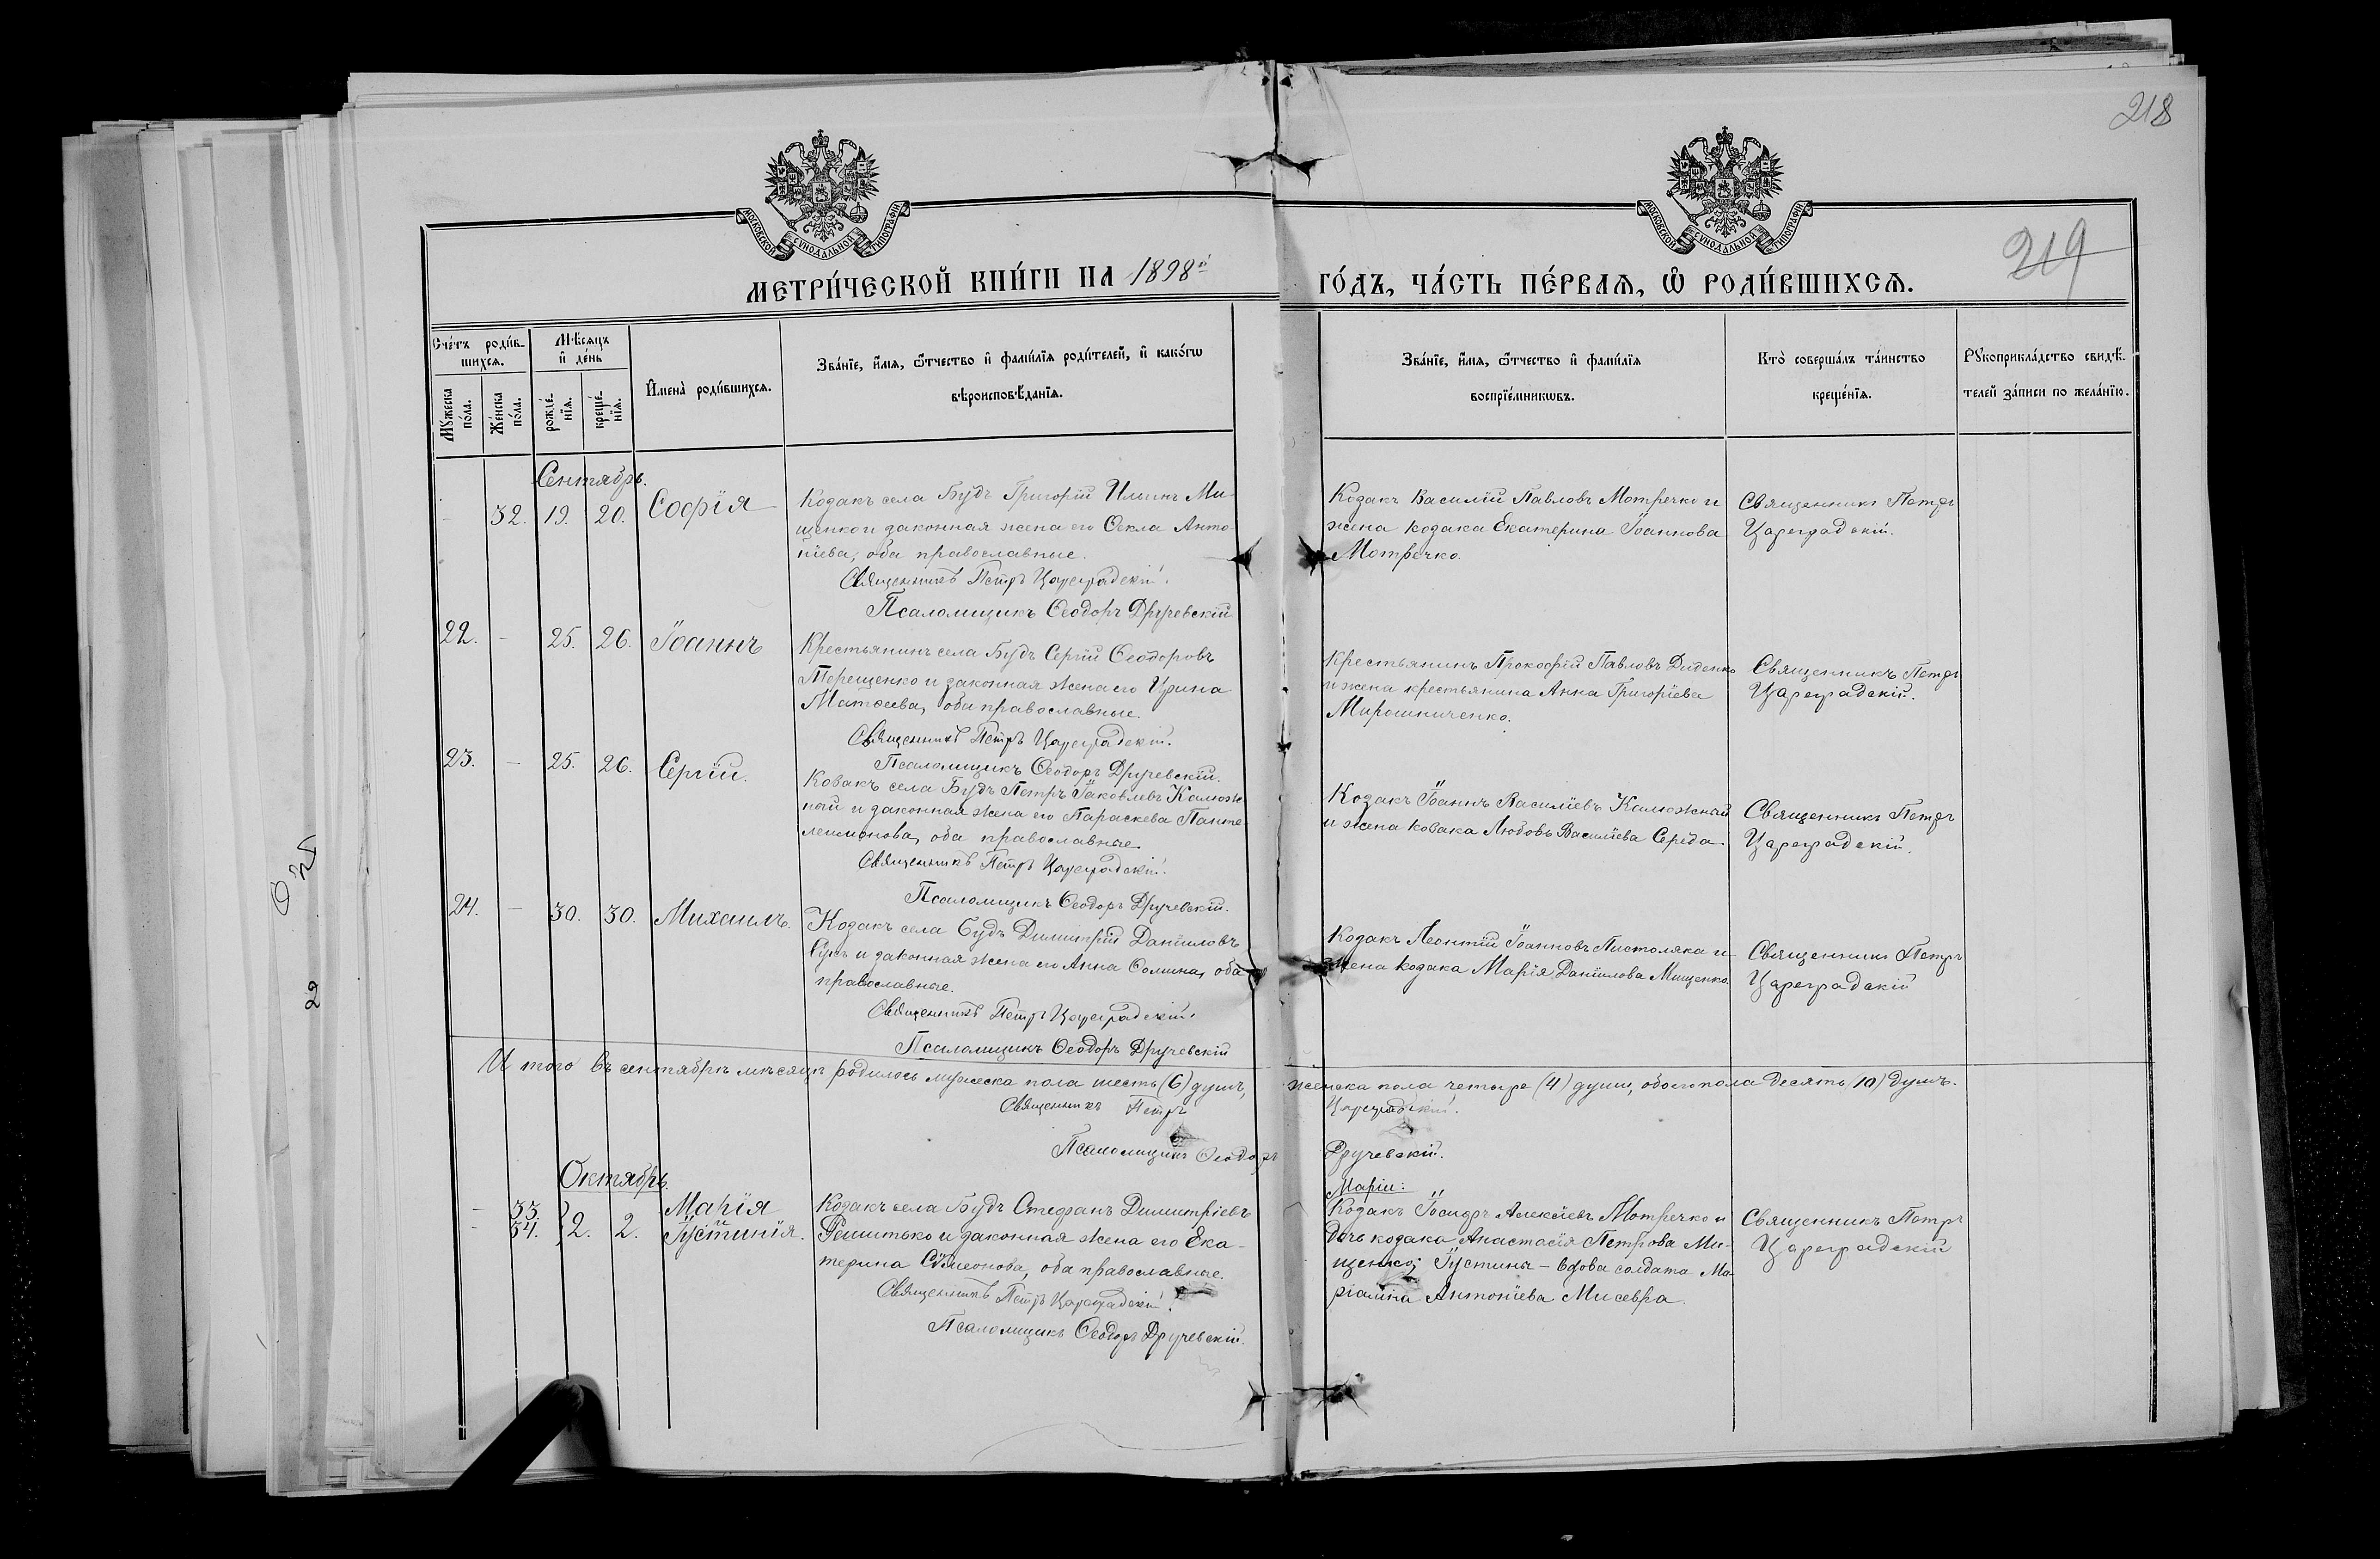 218
219
МОСКОВСКОЙ СУНОДАЛЬНОЙ ТИПОГРАФІИ
МОСКОВСКОЙ СУНОДАЛЬНОЙ ТИПОГРАФІИ
МЕТРИ́ЧЕСКОЙ КНИ́ГИ НА 1898й
ГО́ДЪ, ЧА́СТЬ ПЕ́РВАѦ, Ѡ РОДИ́ВШИХСѦ.
Сче́тъ роди́в-
шихсѧ.
Мꙋжеска
по́ла.
Же́нска
по́ла.
Мѣ́сѧцъ
и҆ де́нь
рожде́-
нїѧ.
креще́-
нїѧ.
И҆мена̀ роди́вшихсѧ.
Зва́нїе, и҆́мѧ, ѻ҆́тчество и҆ фамѝлїѧ роди́телей, и҆ како́гѡ
вѣроисповѣ́данїѧ.
Зва́нїе, и҆́мѧ, ѻ҆́тчество и҆ фамѝлїѧ
воспрїе́мникѡвъ.
Кто̀ соверша́лъ та́инство
креще́нїѧ.
Рꙋкоприкла́дство свидѣ́-
телей за́писи по жела́нїю.
Сентябрь.
- 32. 19. 20. Софія
Козакъ села Будъ Григорій Ильинъ Ми-
щенко и законная жена его Ѳекла Анто-
ніева, оба православные.
Священникъ Петръ Цареградскій.
Псаломщикъ Ѳеодоръ Дручевскій
Козакъ Василій Павловъ Мотречко и
жена козака Екатерина Іоаннова
Мотречко.
Священникъ Петръ
Цареградскій.
22. - 25. 26. Іоаннъ
Крестьянинъ села Будъ Сергій Ѳеодоровъ
Терещенко и законная жена его Ирина
Матѳеева, оба православные.
Священникъ Петръ Цареградскій.
Псаломщикъ Ѳеодоръ Дручевскій.
Крестьянинъ Прокофій Павловъ Диденко
и жена крестьянина Анна Григоріева
Мирошниченко.
Священникъ Петръ
Цареградскій.
23. - 25. 26. Сергій.
Козакъ села Будъ Петръ Іаковлевъ Калюж-
ный и законная жена его Параскева Панте-
леимонова, оба православные
Священникъ Петръ Цареградскій.
Псаломщикъ Ѳеодоръ Дручевскій.
Козакъ Іоаннъ Василіевъ Калюжный
и жена козака Любовь Василіева Середа
Священникъ Петръ
Цареградскій.
24. - 30. 30. Михаилъ.
Козакъ села Будъ Димитрій Даніиловъ
и законная жена его Анна Ѳомина, оба
православные.
Священникъ Петръ Цареградскій.
Псаломщикъ Ѳеодоръ Дручевскій
Козакъ Леонтій Іоанновъ Пистоляка и
жена козака Марія Даніилова Мищенко.
Священникъ Петръ
Цареградскій
И того въ сентябрѣ мѣсяцѣ родилось мужеска пола шесть (6) душъ, женска пола четыре (4) души, обоего пола десять (10) душъ.
Священникъ Петръ Цареградскій.
Псаломщикъ Ѳеодоръ Дручевскій.
Октябрь.
- 33. Марія
- 34. } 2. 2. Іустинія.
Козакъ села Будъ Стефанъ Димитріевъ
Решитько и законная жена его Ека-
терина Сѵмеонова, оба православные.
Священникъ Петръ Цареградскій.
Псаломщикъ Ѳеодоръ Дручевскій.
Маріи:
Козакъ Іосифъ Алексіевъ Мотречко и
дочь козака Анастасія Петрова Ми-
щенко; Іустины - вдова солдата Ма-
ріанна Антоніева Мисевра.
Священникъ Петръ
Цареградскій